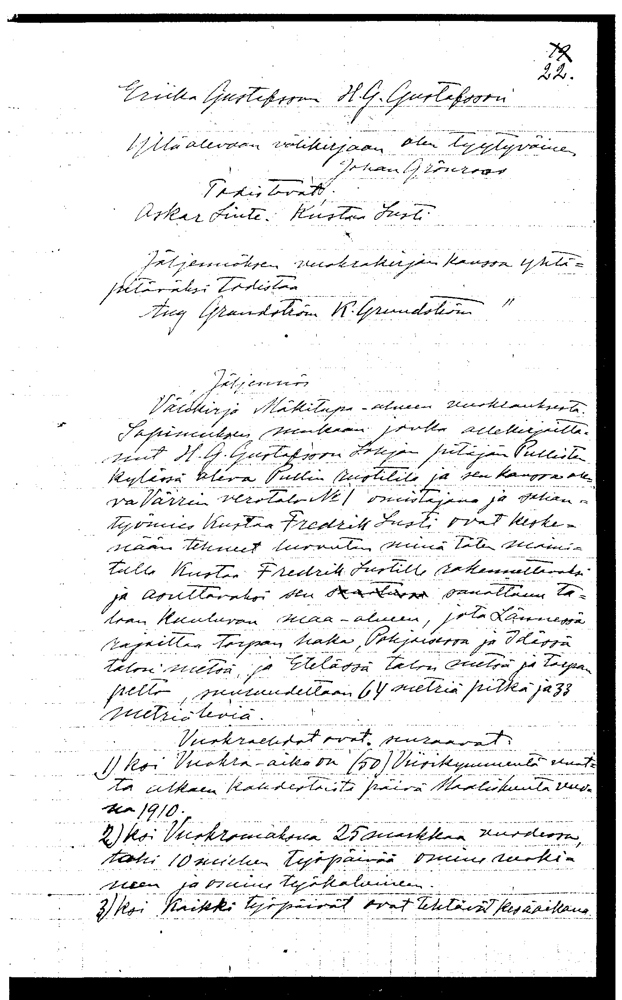 19
22.
Eriika Gustafsson H. G. Gustafsson
Ylläolevaan välikirjaan olen tyytyväinen
Johan Grönroos
Todistavat:
Oskar Sinte. Kustaa Susti
Jäljennöksen vuokrakirjan kanssa yhtä=
pitäväksi todistaa
Aug Grundström K. Grundström "
Jäljennös
Välikirja Mäkitupa-alueen vuokrauksesta.
Sopimuksen mukaan jonka allekirjoitta-
neet H. G. Gustafsson Lohjan pitäjän Pullisten
kylässä oleva Pullin rustitila ja sen kanssa ole-
va Värrin verotalo № 1 omistajana ja sekan-
työmies Kustaa Fredrik Susti ovat keske-
nään tehneet luovutan minä täten maini-
tulle Kustaa Fredrik Sustille rakennettavaksi
ja asuttavaksi sen sanottuun ta-
loon kuuluvan maa-alueen, jota Lännessä
rajoittaa torpan haka, Pohjoisessa ja Idässä
talon metsä, ja Etelässä talon metsä ja torpan
pelto, suuruudeltaan 64 metriä pitkä ja 33
metriä leviä.
Vuokraehdot ovat seuraavat:
1) ksi Vuokra-aika on (50) Viisikymmentä vuot-
ta alkaen kahdestoista päivä Maaliskuuta vuon-
na 1910.
2) ksi Vuokramaksua 25 markkaa vuodessa,
tahi 10 miehen työpäivää omine ruoki-
neen ja omine työkaluineen.
3) ksi Kaikki työpäivät ovat tehtävät kesäaikana